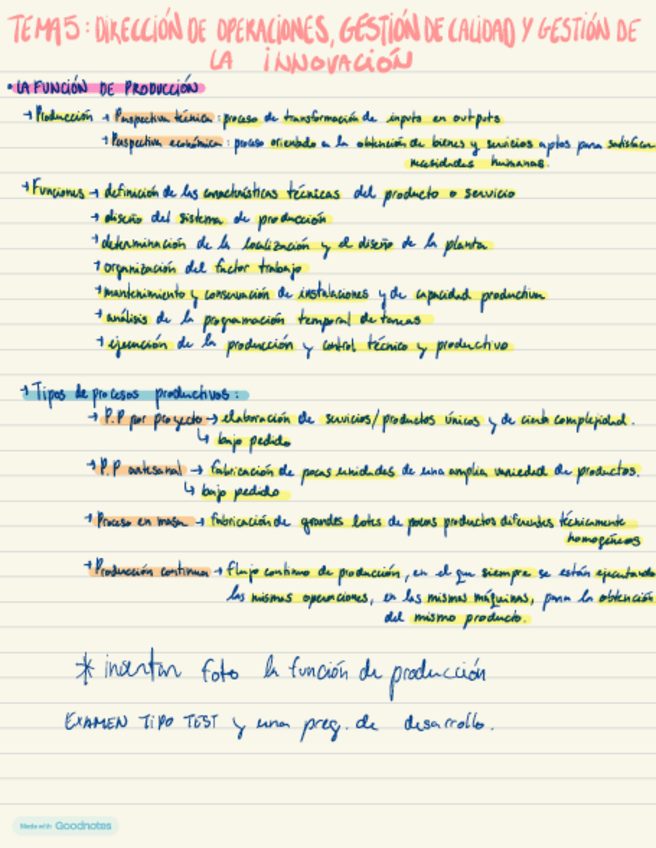 TEMA 5: DIRECCIÓN DE OPERACIONES, GESTIÓN DE CALIDAD Y GESTIÓN DE
LA INNOVACIÓN
• LA FUNCIÓN DE PRODUCCIÓN
→ Producción → Perspectiva técnica: proceso de transformación de inputs en outputs
→ Perspectiva económica: proceso orientado a la obtención de bienes y servicios aptos para satisfacer
necesidades humanas.
→ Funciones → definición de las características técnicas del producto o servicio
→ diseño del sistema de producción
→ determinación de la localización y el diseño de la planta
→ organización del factor trabajo
→ mantenimiento y conservación de instalaciones y de capacidad productiva
→ análisis de la programación temporal de tareas
→ ejecución de la producción y control técnico y productivo
→ Tipos de procesos productivos:
→ P.P por proyecto → elaboración de servicios/productos únicos y de cierta complejidad.
↳ bajo pedido
→ P.P artesanal → fabricación de pocas unidades de una amplia variedad de productos.
↳ bajo pedido
→ Proceso en masa → fabricación de grandes lotes de pocos productos diferentes técnicamente
homogéneos
→ Producción continua → flujo continuo de producción, en el que siempre se están ejecutando
las mismas operaciones, en las mismas máquinas, para la obtención
del mismo producto.
* insertar foto la función de producción
EXAMEN TIPO TEST y una preg. de desarrollo.
Made with Goodnotes